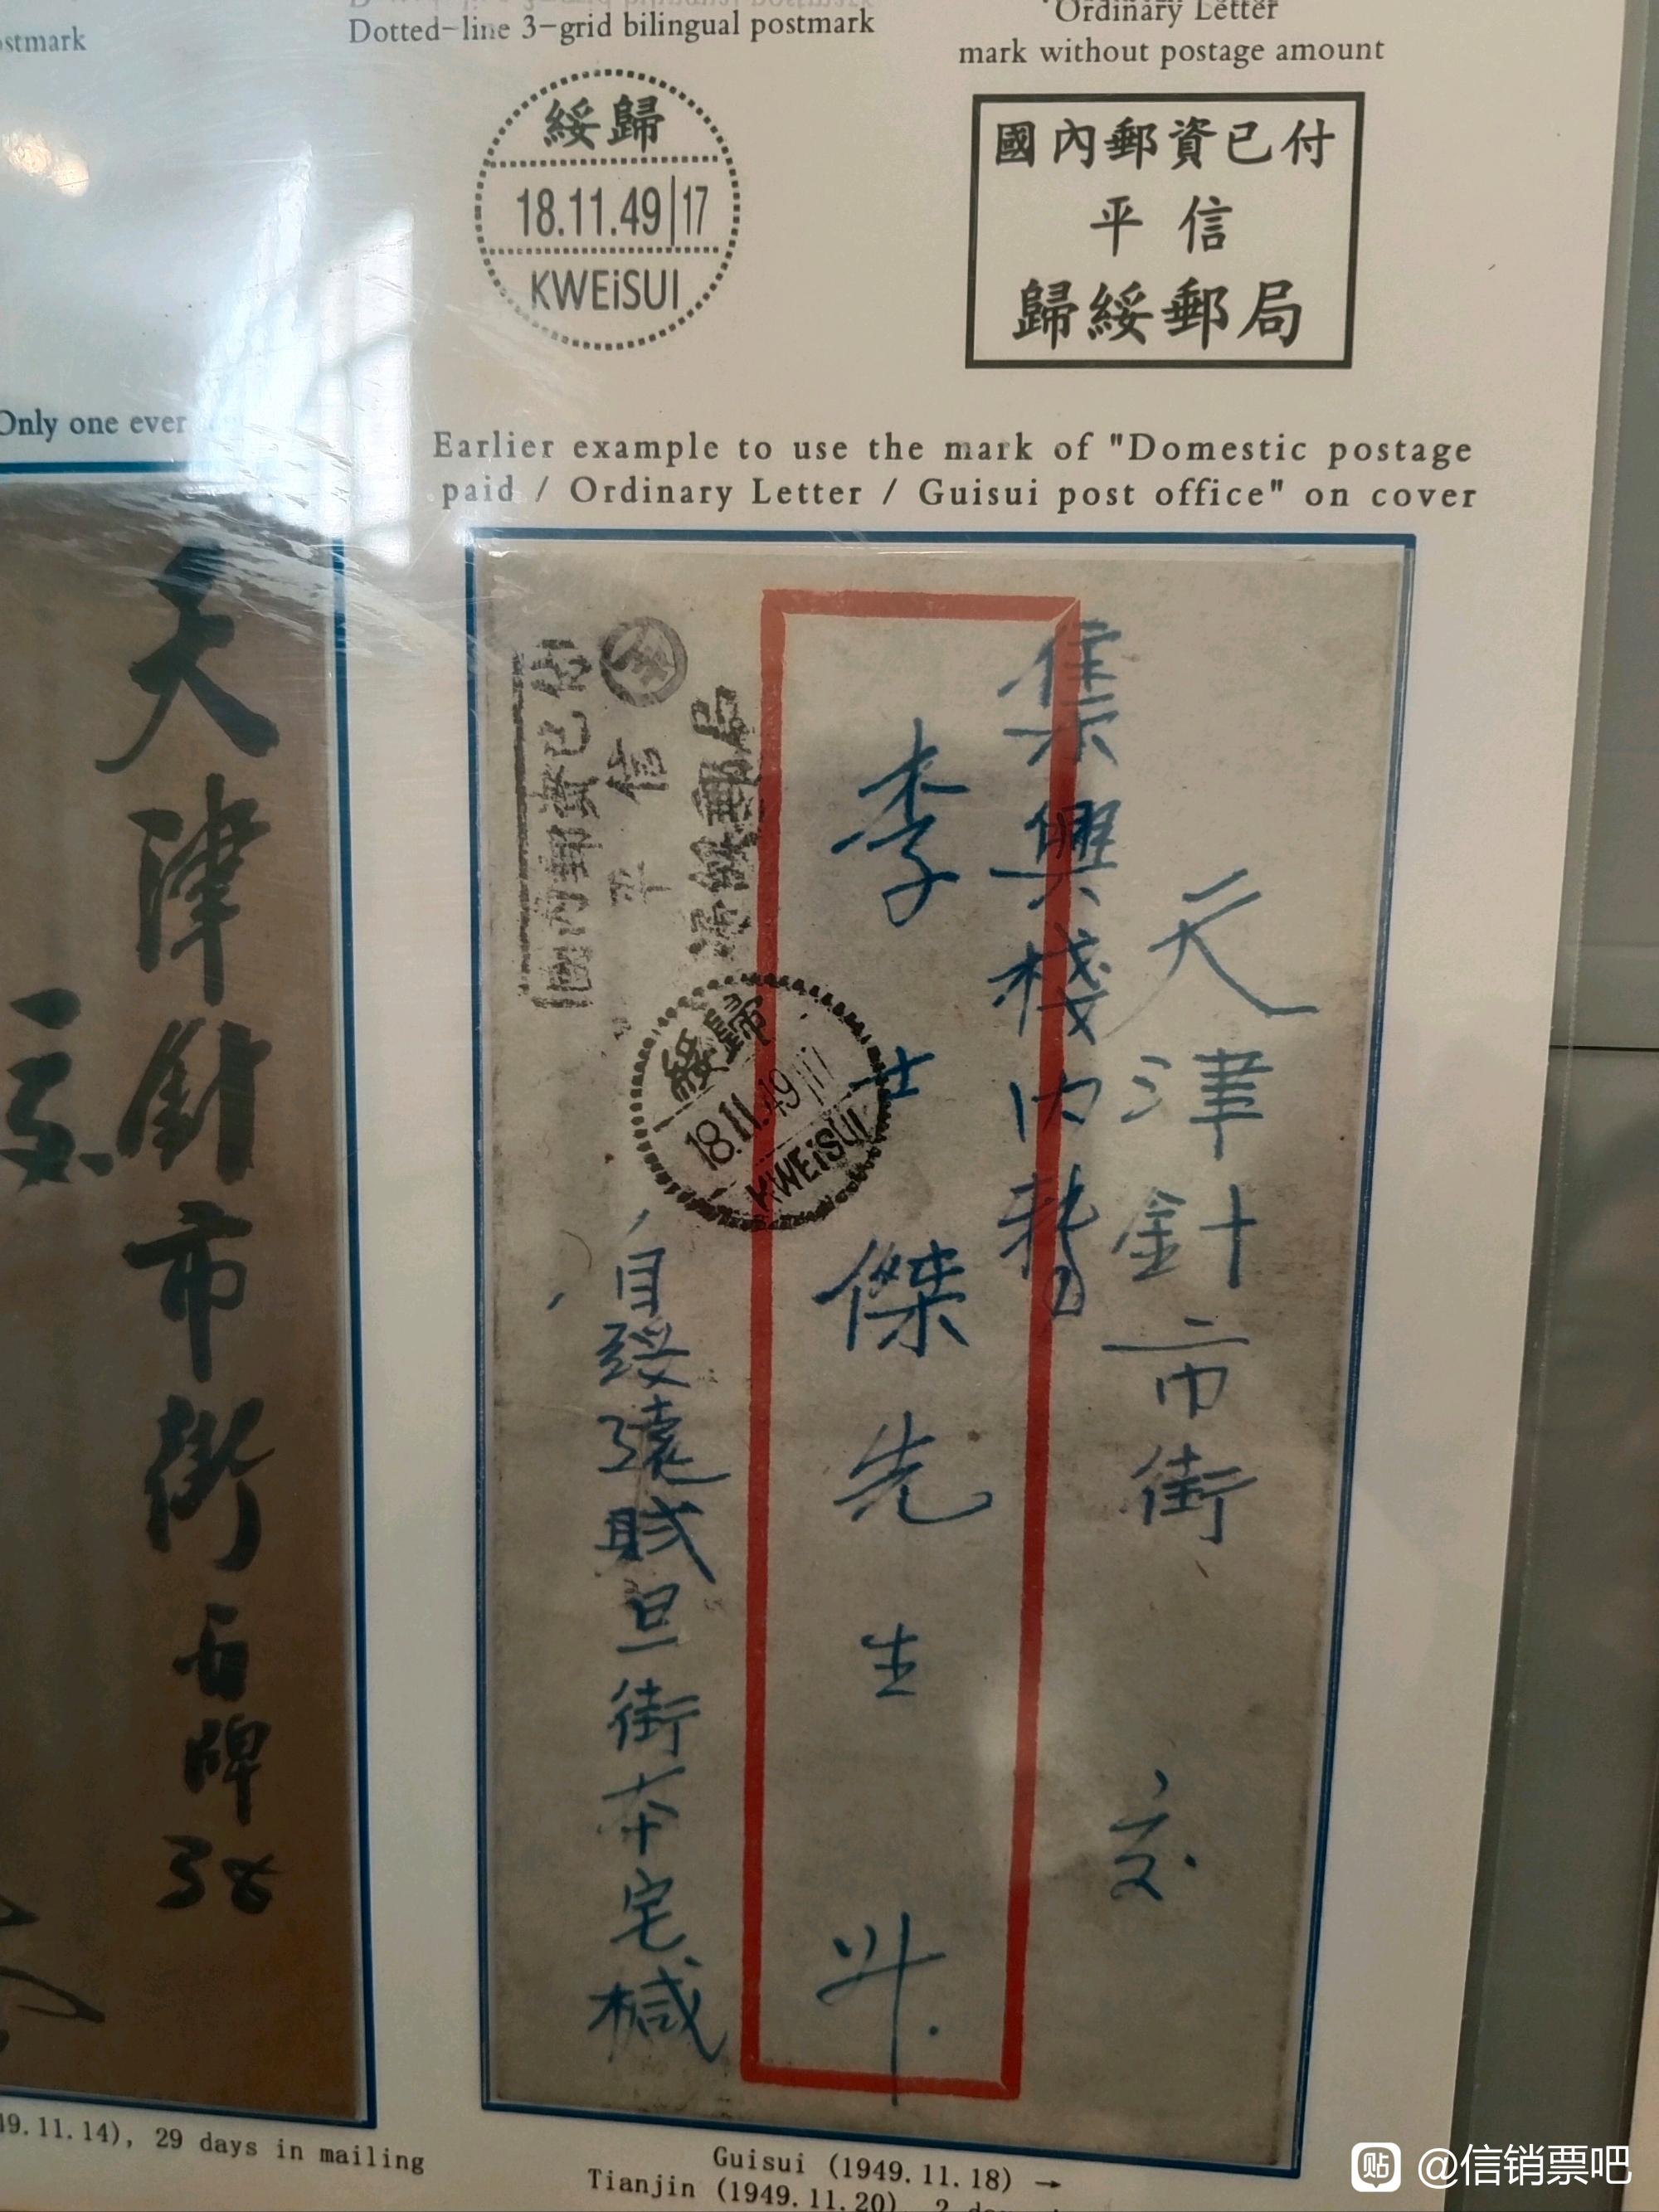 stmark
Dotted-line 3-grid bilingual postmark
"Ordinary Letter
mark without postage amount
綏歸
18.11.49|17
KWEiSUI
國內郵資已付
平信
歸綏郵局
Only one ever
Earlier example to use the mark of "Domestic postage
paid / Ordinary Letter / Guisui post office" on cover
天津針市街
百牌
38
天津針市街
交
集興棧内
李士傑先生
自綏遠贼旦街本宅槭
綏歸
18.11.49|17
KWEiSUI
49.11.14), 29 days in mailing
Guisui (1949.11.18) →
Tianjin (1949.11.20)
贴 @信销票吧